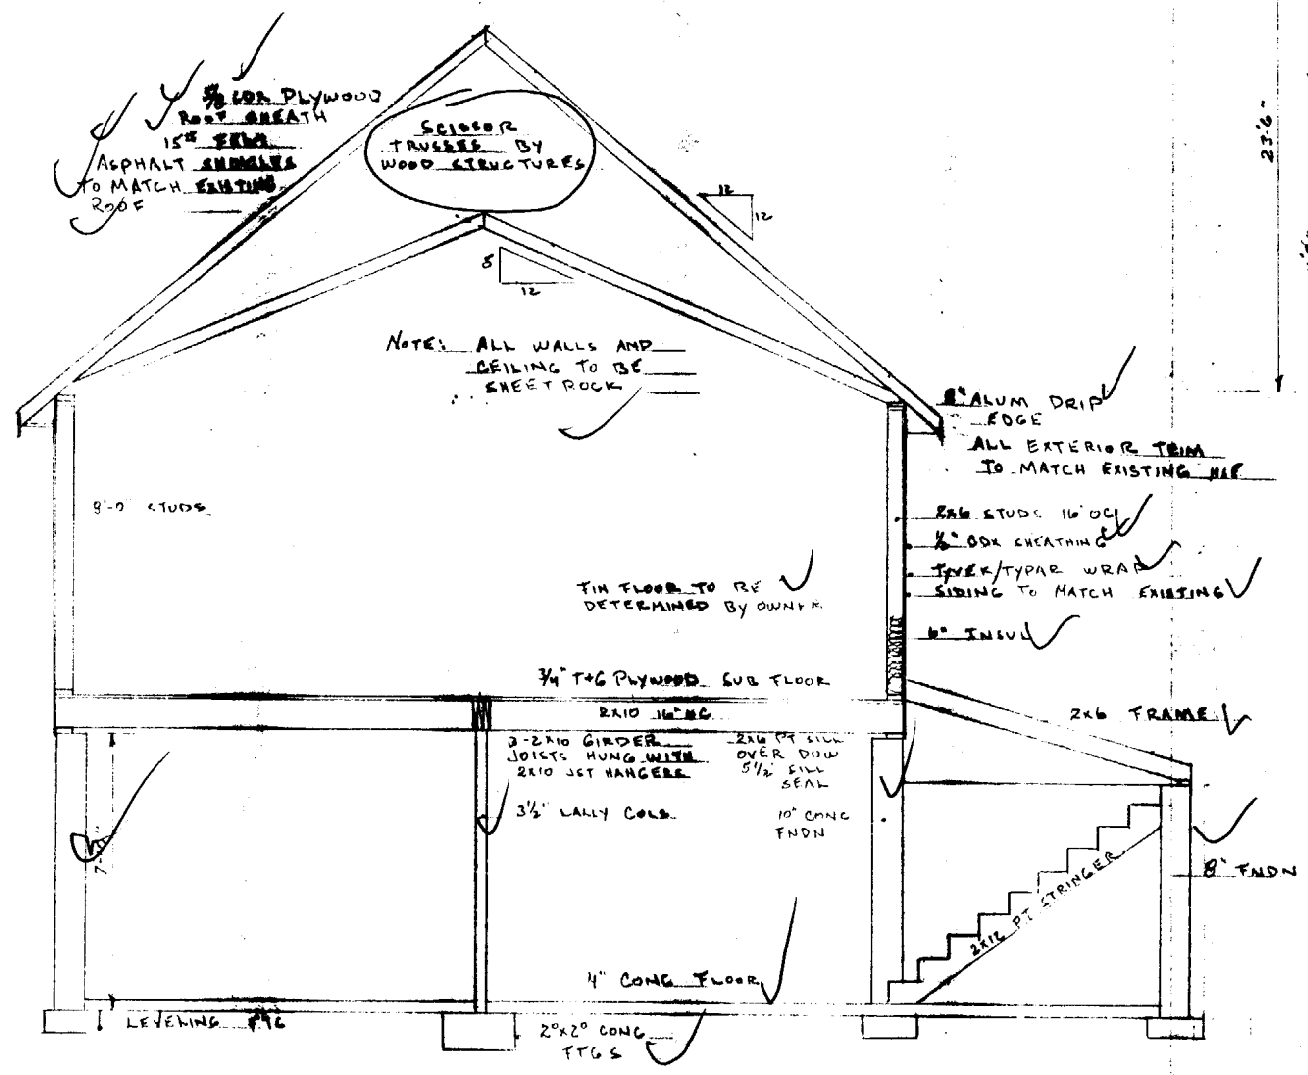 5/8 CDX PLYWOOD
ROOF SHEATH
15# FELT
ASPHALT SHINGLES
TO MATCH EXISTING
ROOF
SCISSOR
TRUSSES BY
WOOD STRUCTURES
12
12
8
12
23'-6"
NOTE: ALL WALLS AND
CEILING TO BE
SHEETROCK
8" ALUM DRIP
EDGE
ALL EXTERIOR TRIM
TO MATCH EXISTING HSE
8'-0" STUDS
2x6 STUDS 16" OC
1/2" CDX SHEATHING
TYVEK/TYPAR WRAP
SIDING TO MATCH EXISTING
6" INSUL
FIN FLOOR TO BE
DETERMINED BY OWNER
3/4" T+G PLYWOOD SUB FLOOR
2x10 16" OC
2x6 FRAME
3-2x10 GIRDER
JOISTS HUNG WITH
2x10 JST HANGERS
2x6 PT SILL
OVER DOW
5 1/2" SILL
SEAL
3 1/2" LALLY COLS
10" CONC
FNDN
8" FNDN
2x12 PT STRINGER
4" CONC FLOOR
LEVELING
2°x2° CONC
FTGS